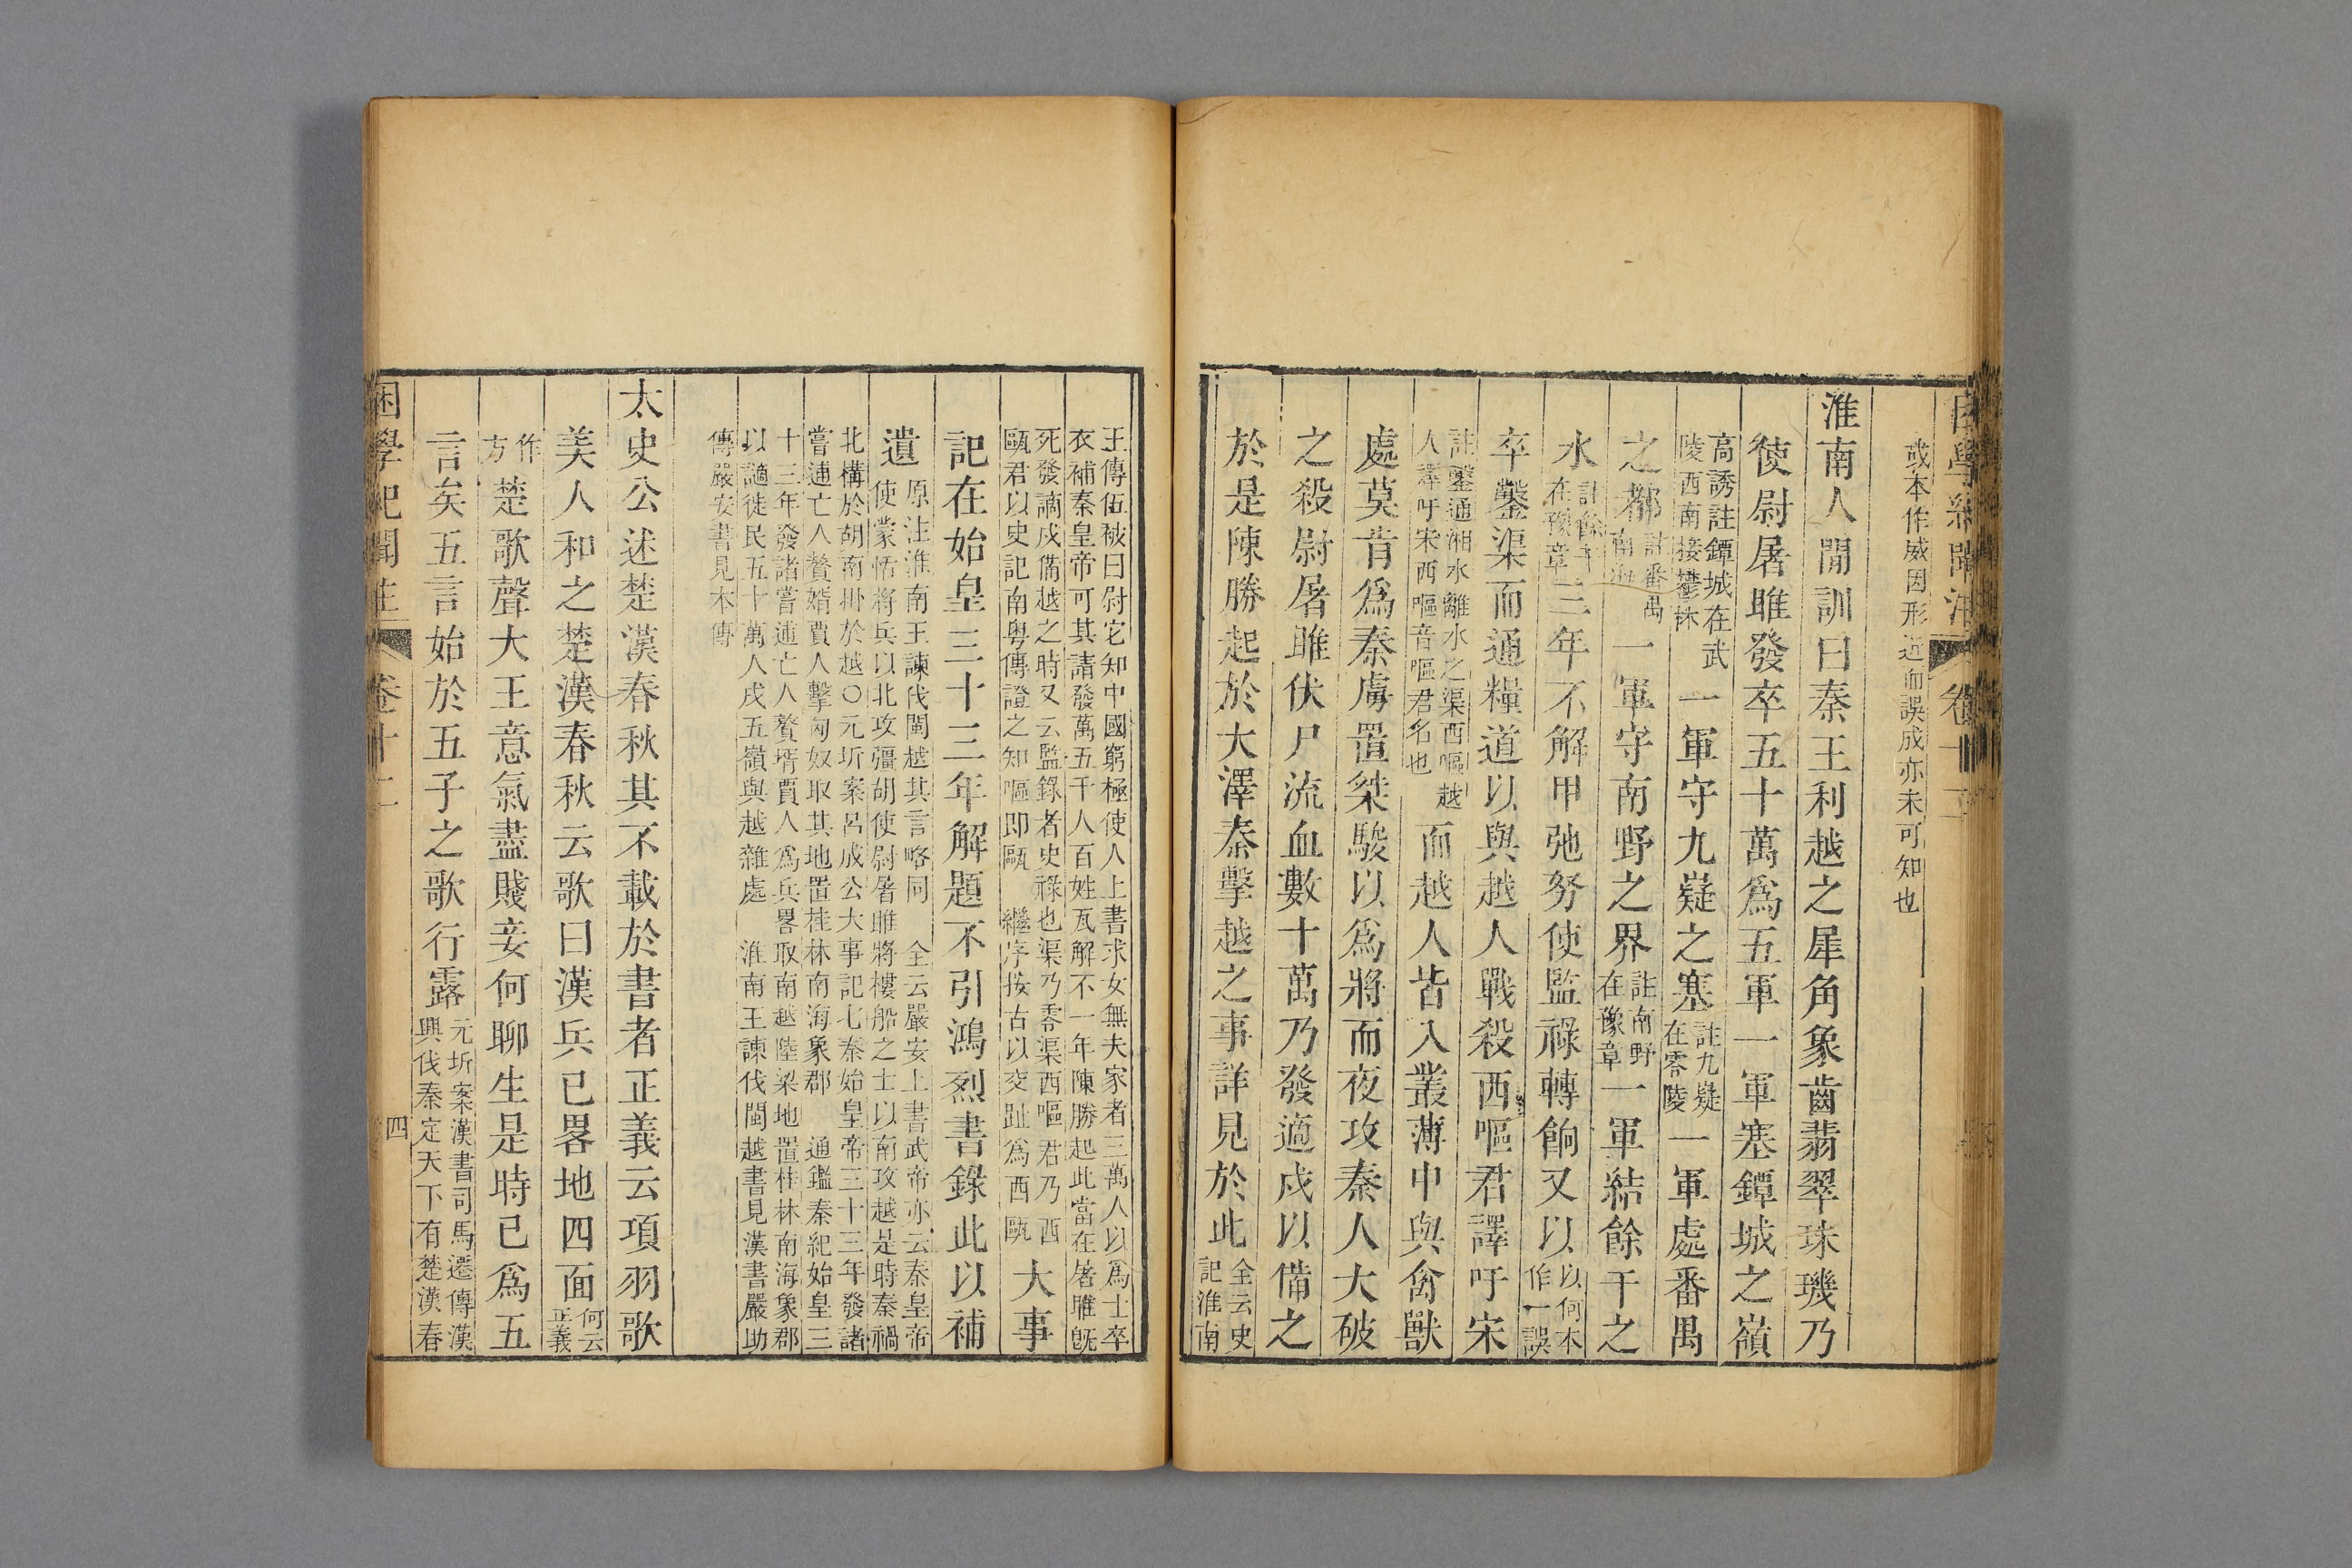 或本作威因形近而誤成亦未可知也
淮南人閒訓曰秦王利越之犀角象齒翡翠珠璣乃
使尉屠睢發卒五十萬爲五軍一軍塞鐔城之嶺
高誘註鐔城在武
陵西南接鬱林
一軍守九嶷之塞
註九嶷
在零陵
一軍處番禺
之都
註番禺
南海
一軍守南野之界
註南野
在豫章
一軍結餘干之
水
註餘干
在豫章
三年不解甲弛弩使監祿轉餉又以
以何本
作一誤
卒鑿渠而通糧道以與越人戰殺西嘔君譯吁宋
註鑿通湘水離水之渠西嘔越
人譯吁宋西嘔音嘔君名也
而越人皆入叢薄中與禽獸
處莫肯爲秦虜置桀駿以爲將而夜攻秦人大破
之殺尉屠睢伏尸流血數十萬乃發適戍以備之
於是陳勝起於大澤秦擊越之事詳見於此
全云史
記淮南
王傳伍被曰尉它知中國窮極使人上書求女無夫家者三萬人以爲士卒
衣補秦皇帝可其請發萬五千人百姓瓦解不一年陳勝起此當在屠睢旣
死發謫戍備越之時又云監錄者史祿也渠乃零渠西嘔君乃西
甌君以史記南粤傳證之知嘔即甌 繼序按古以交趾爲西甌
大事
記在始皇三十三年解題不引鴻烈書錄此以補
遺
原注淮南王諫伐閩越其言略同 全云嚴安上書武帝亦云秦皇帝
使蒙恬將兵以北攻彊胡使尉屠睢將樓船之士以南攻越是時秦禍
北構於胡南挂於越○元圻案呂成公大事記七秦始皇帝三十三年發諸
嘗逋亡人贅婿賈人擊匈奴取其地置桂林南海象郡 通鑑秦紀始皇三
十三年發諸嘗逋亡人贅壻賈人爲兵畧取南越陸梁地置桂林南海象郡
以謫徙民五十萬人戍五嶺與越雜處 淮南王諫伐閩越書見漢書嚴助
傳嚴安書見本傳
太史公述楚漢春秋其不載於書者正義云項羽歌
美人和之楚漢春秋云歌曰漢兵已畧地四面
何云
正義
作
方
楚歌聲大王意氣盡賤妾何聊生是時已爲五
言矣五言始於五子之歌行露
元圻案漢書司馬遷傳漢
興伐秦定天下有楚漢春
困學紀聞注 卷十二 四